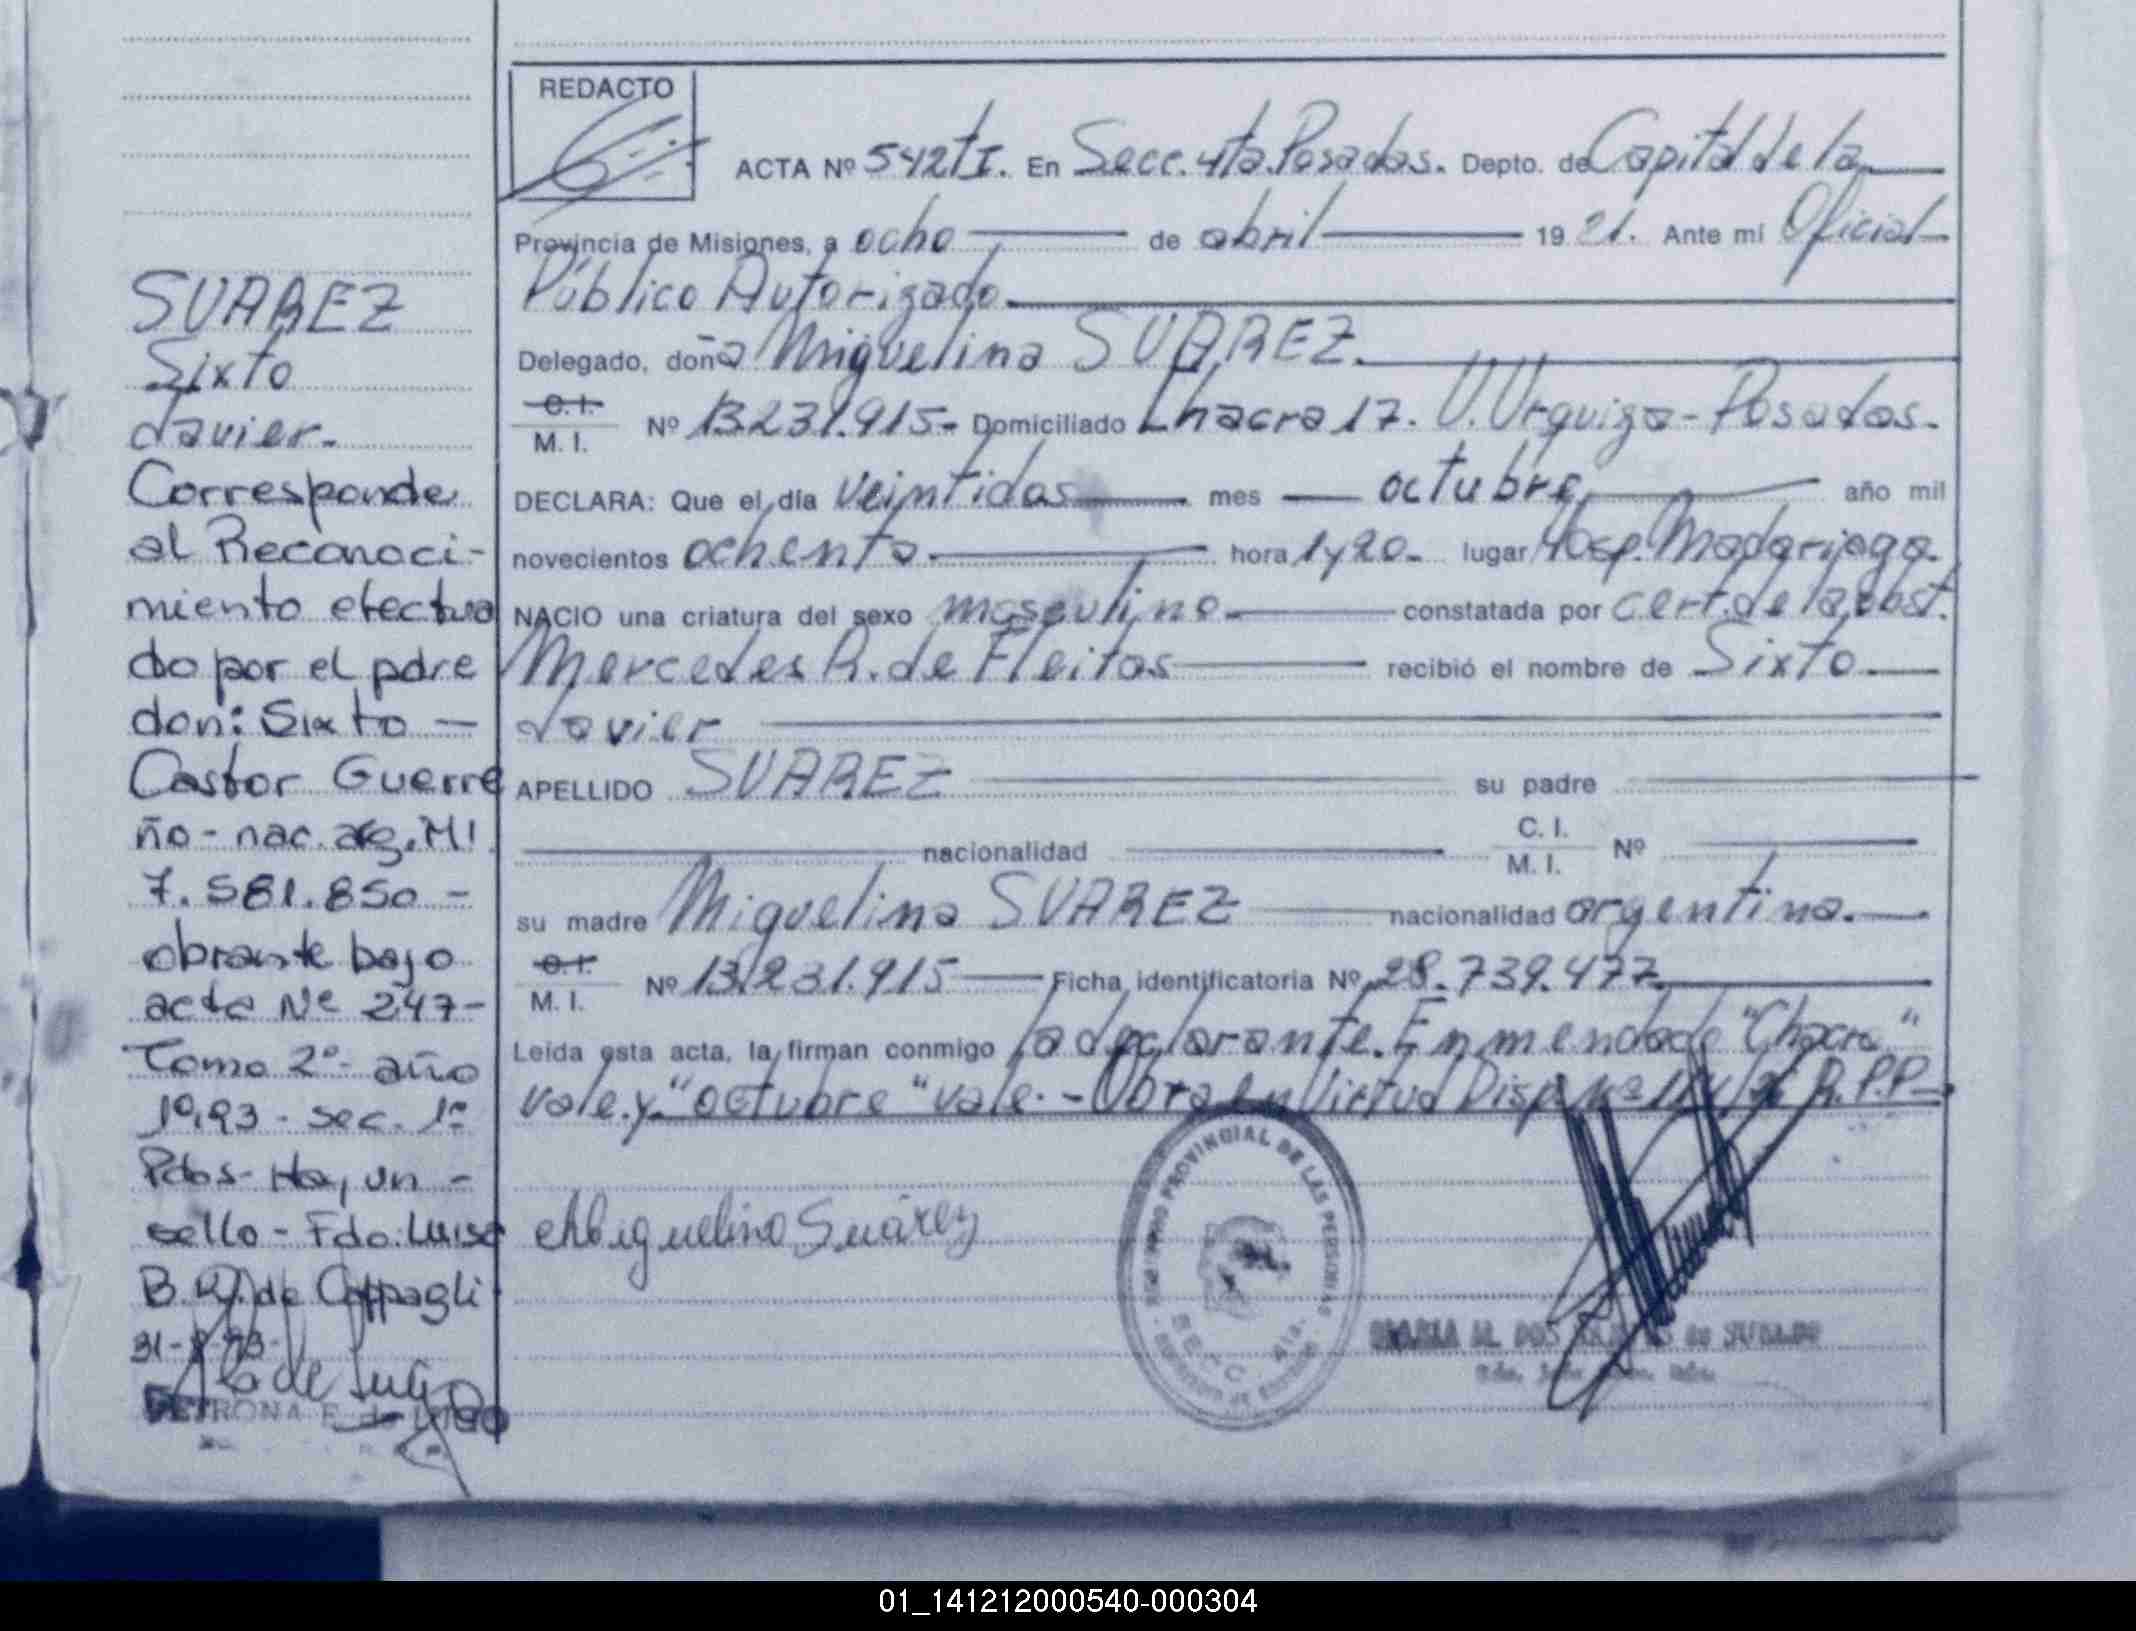 SUAREZ
Sixto
Javier.
Corresponde
al Reconoci-
miento efectua
do por el pdre
don: Sixto —
Castor Guerre
ño - nac. arg. MI
7.581.850 -
obrante bajo
acta Nº 247-
Tomo 2º - año
1993 - sec. 1º
Pdos- Hay un -
sello - Fdo: Luisa
B. de Coppagli
PETRONA E. de LUGO
REDACTO
ACTA Nº 542TI. En Secc. 4ta. Posadas. Depto. de Capital de la
Provincia de Misiones, a ocho de abril 19 81. Ante mí Oficial
Público Autorizado.
Delegado, doña Miguelina SUAREZ.
C. I.
M. I. Nº 13.231.915.- Domiciliado Chacra 17. V. Urquiza - Posadas.
DECLARA: Que el día veintidos mes octubre año mil
novecientos ochenta. hora 1y20. lugar Hosp. Madariaga.
NACIO una criatura del sexo masculino. constatada por cert. de la obst.
Mercedes R. de Fleitas recibió el nombre de Sixto
Javier
APELLIDO SUAREZ su padre
nacionalidad C. I. M. I. Nº
su madre Miguelina SUAREZ nacionalidad argentina.
C. I.
M. I. Nº 13.231.915 Ficha identificatoria Nº 28.739.477
Leída esta acta, la firman conmigo la declarante. Enmendado "Chacra"
vale. y "octubre" vale. - Obra en Virtud Disp. Nº R.P.P.
Miguelina Suárez
REGISTRO PROVINCIAL DE LAS PERSONAS
SECC. 4ta.
01_141212000540-000304